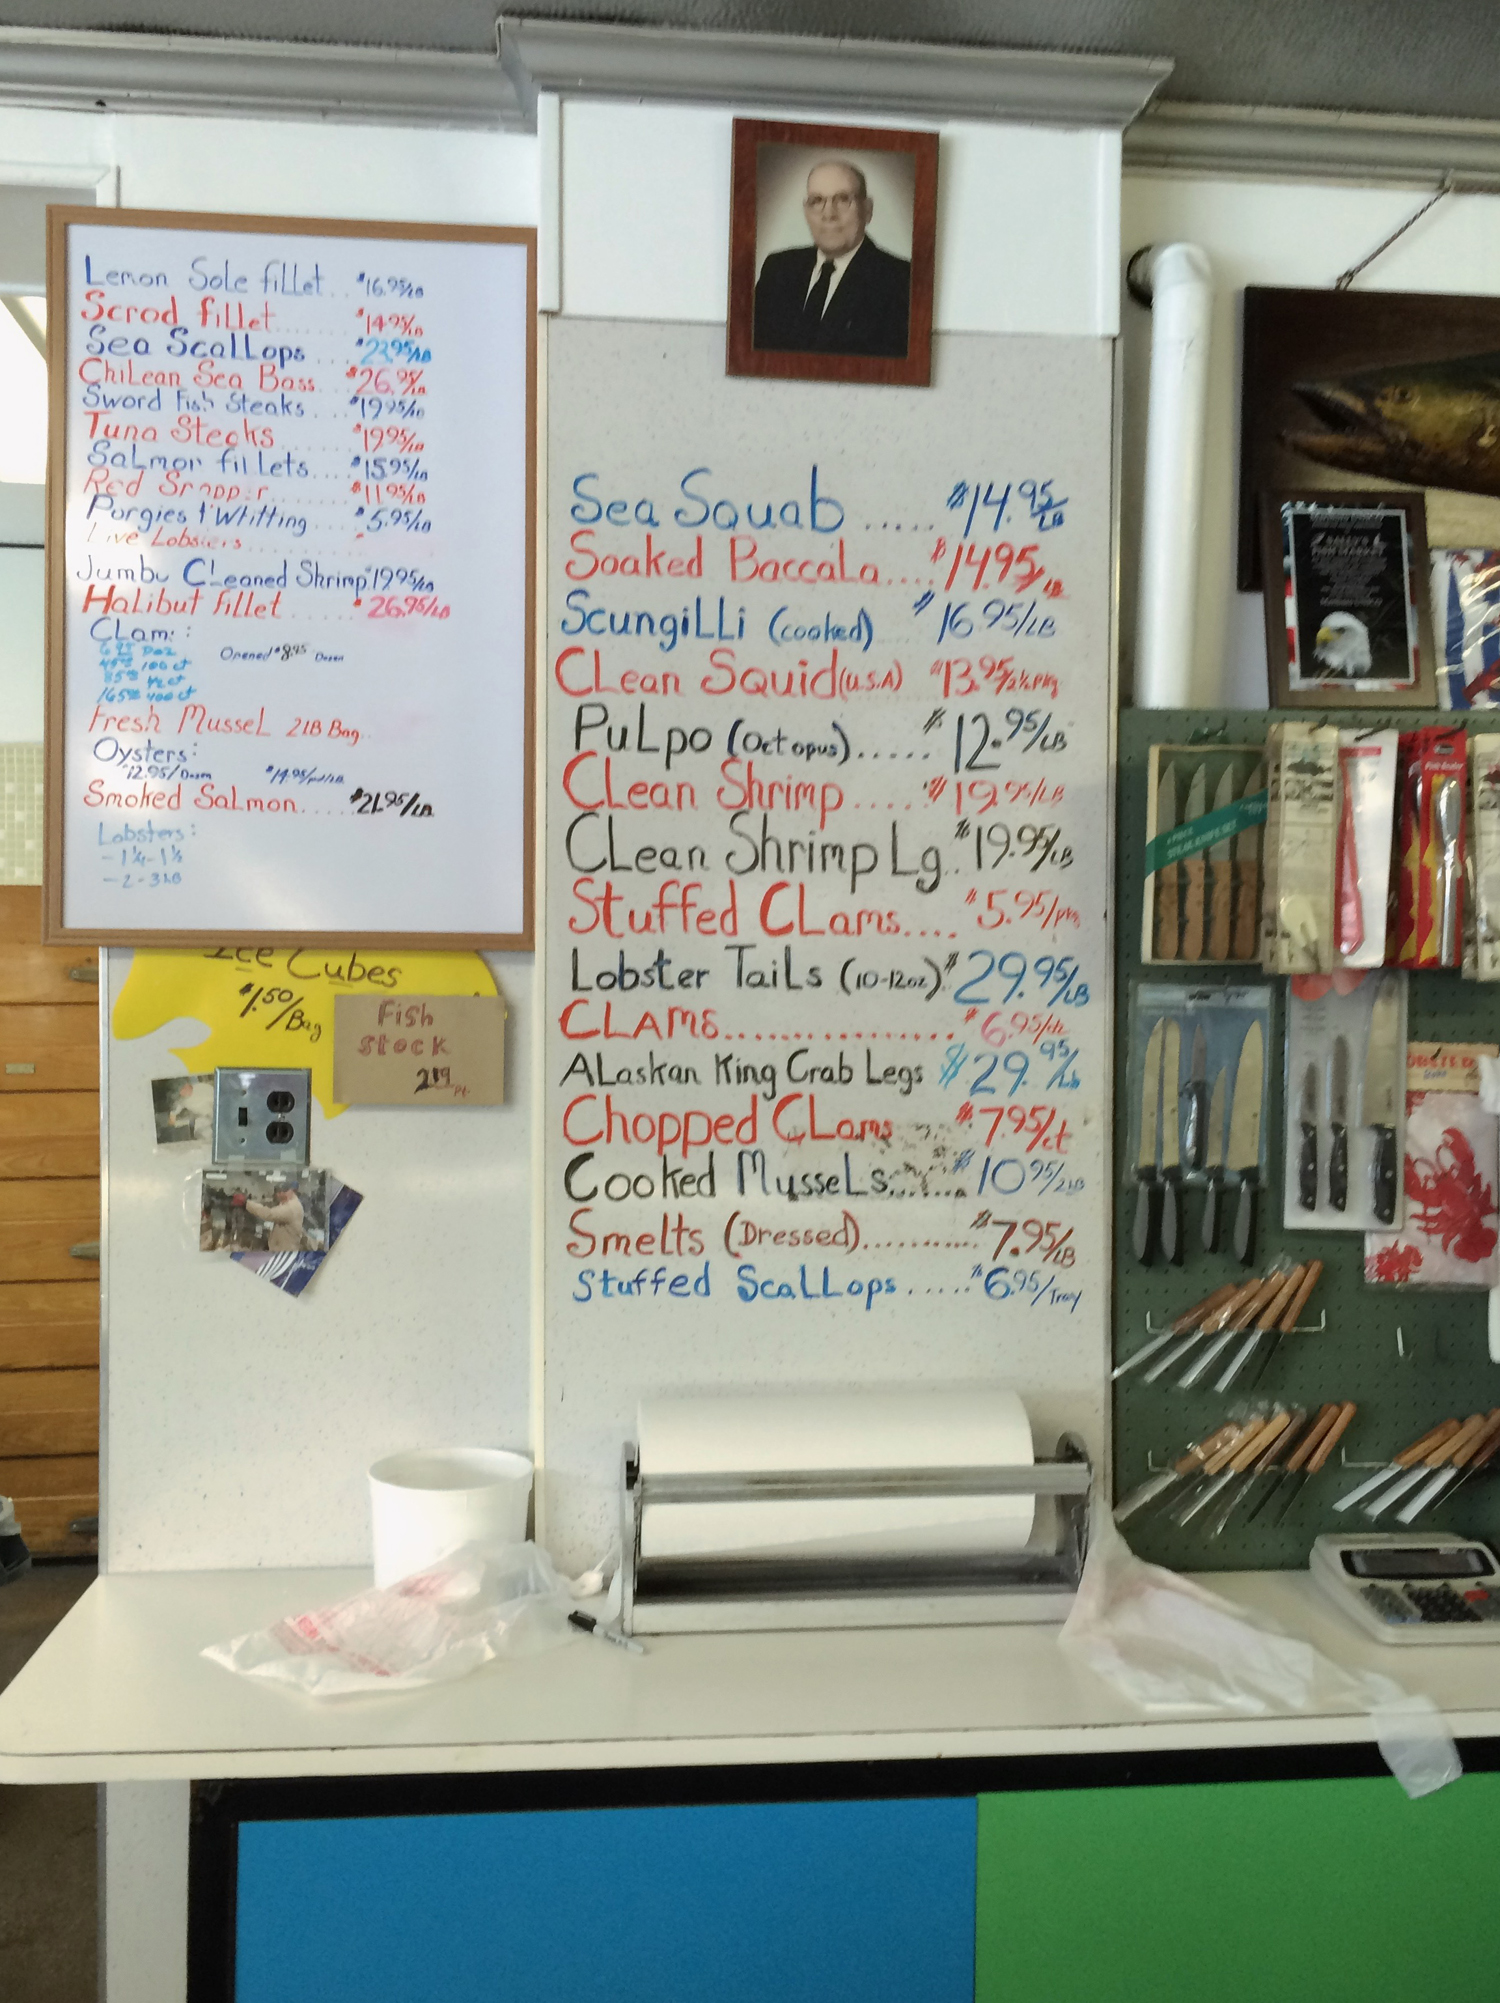 Lemon Sole fillet.. $16.95/LB
Scrod fillet....... $14.95/LB
Sea ScaLLops .... $23.95/LB
ChiLean Sea Bass... $26.95/LB
Sword Fish Steaks.... $19.95/LB
Tuna Steaks ...... $19.95/LB
SaLmon fiLLets.... $15.95/LB
Red Snapper....... $11.95/LB
Porgies + Whitting .... $5.95/LB
Live Lobsters..........
Jumbo CLeaned Shrimp $19.95/LB
Halibut fillet ...... $26.95/LB
CLams:
6.95 Doz
Opened $8.95 Dozen
45.00 100 ct
85.00 1/2 ct
165.00 400 ct
Fresh MusseL 2LB Bag..
Oysters:
$12.95/Dozen
Smoked SaLmon..... $21.95/LB
Lobsters:
- 1 1/4 - 1 1/2
- 2 - 3 LB
Ice Cubes
$1.50/Bag
Fish
Stock
2.49 Pt.
Sea Squab ..... $14.95/LB
Soaked BaccaLa.... $14.95/LB
ScungiLLi (cooked) $16.95/LB
CLean Squid (U.S.A) $13.95/2 1/2 Pkg
PuLpo (Octopus)..... $12.95/LB
CLean Shrimp .... $19.95/LB
CLean Shrimp Lg.. $19.95/LB
Stuffed CLams.... $5.95/pkg
Lobster TaiLs (10-12oz) $29.95/LB
CLAMS................ $6.95/dz
ALaskan King Crab Legs $29.95/Lb
Chopped CLams $7.95/ct
Cooked MusseLs....... $10.95/2LB
Smelts (Dressed).......... $7.95/LB
Stuffed ScaLLops ..... $6.95/Tray